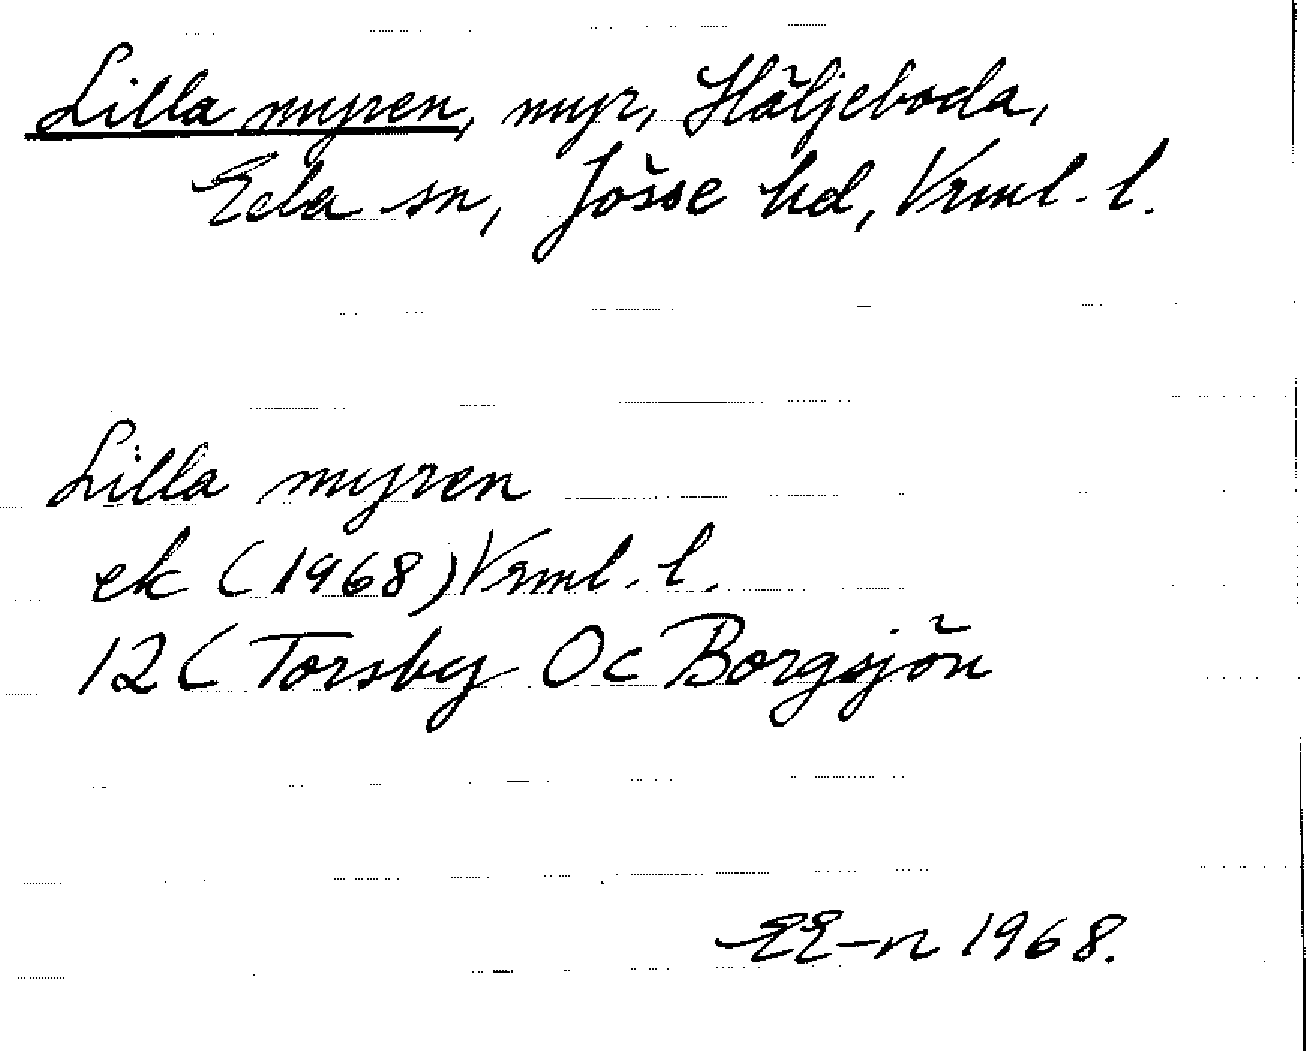 Lilla myren, myr, Häljeboda,
Eda sn, Jösse hd, Vrml. l.
Lilla myren
ek (1968) Vrml. l.
12 C Torsby Oc Borgsjön
EE-n 1968.